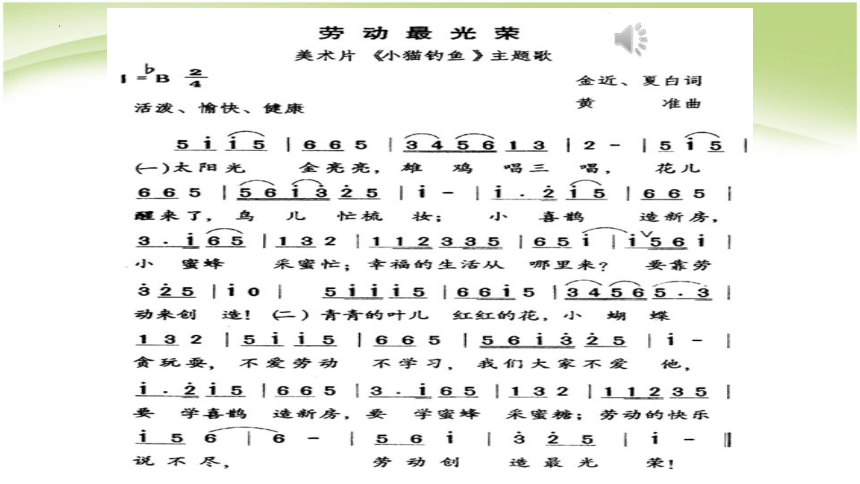 劳动最光荣
美术片《小猫钓鱼》主题歌
1=♭B 2/4
金近、夏白词
活泼、愉快、健康
黄 准曲
5 i i 5 | 6 6 5 | 3 4 5 6 1 3 | 2 - | 5 i 5 |
(一)太阳光 金亮亮，雄 鸡 唱三 唱， 花儿
6 6 5 | 5 6 i 3 2 5 | i - | i . 2 i 5 | 6 6 5 |
醒来了，鸟 儿 忙梳 妆； 小 喜鹊 造新房，
3 . i 6 5 | 1 3 2 | 1 1 2 3 3 5 | 6 5 i | i 5 6 i |
小 蜜蜂 采蜜忙；幸福的生活从 哪里来？ 要靠劳
3 2 5 | i 0 | 5 i i i 5 | 6 6 i 5 | 3 4 5 6 5 . 3 |
动来创 造！(二)青青的叶儿 红红的花，小 蝴 蝶
1 3 2 | 5 i i 5 | 6 6 5 | 5 6 i 3 2 5 | i - |
贪玩耍，不爱劳动 不学习，我们大家不爱 他，
i . 2 i 5 | 6 6 5 | 3 . i 6 5 | 1 3 2 | 1 1 2 3 5 |
要 学喜鹊 造新房，要 学蜜蜂 采蜜糖；劳动的快乐
i 5 6 | 6 - | 5 6 i | 3 2 5 | i - ‖
说不尽， 劳动创 造最光 荣！